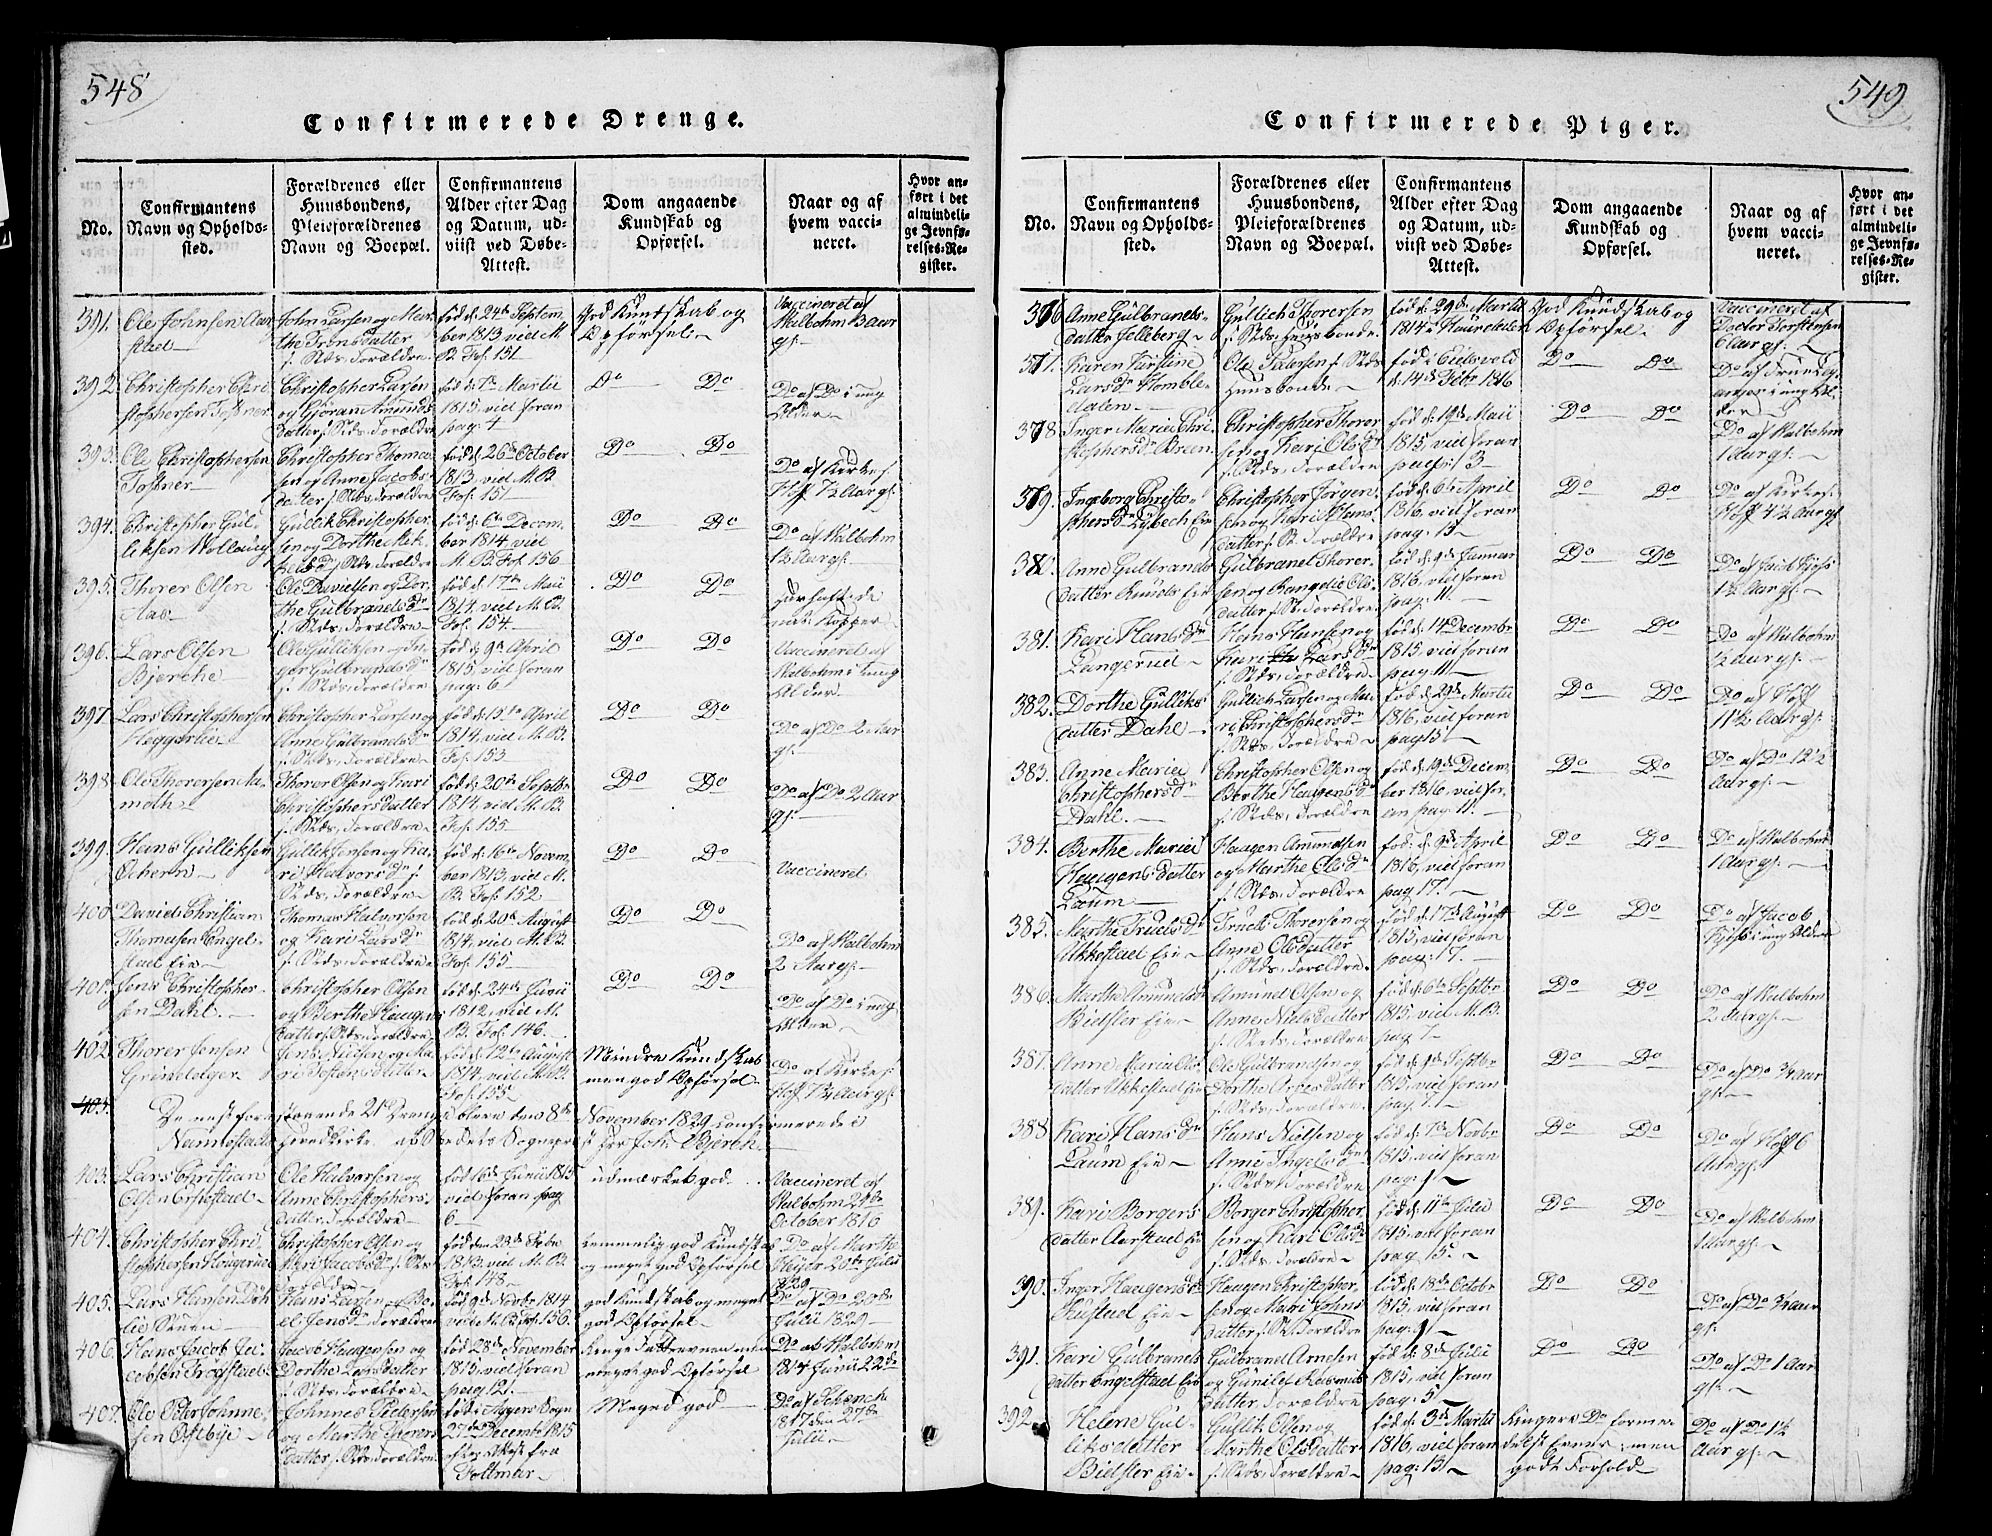 548
Confirmerede Drenge.
No.
Confirmantens
Navn og Opholds-
sted.
Forældrenes eller
Huusbondens,
Pleieforældrenes
Navn og Boepæl.
Confirmantens
Alder efter Dag
og Datum, ud-
viist ved Døbe-
Attest.
Dom angaaende
Kundskab og
Opførsel.
Naar og af
hvem vacci-
neret.
Hvor an-
ført i det
almindeli-
ge Jevnfø-
relses-Re-
gister.
391.
Ole Johnsen Aar
stad
John Larsen og Mar
the Jensdatter
Forældre
fød d: 24de Septem
ber 1813, vid M.
B. Fol. 151
God Kundskab og
Opførsel
Vaccineret af
Malbohm 3 Aar
gl.
392.
Christopher Chri
stophersen Tofsner
Christopher Larsen
og Gjøran Amunds
datter, Forældre
fød d: 7de Martii
1815, vid foran
pag: 4
Do Do
Do af Do i ung
Alder
393.
Ole Christophersen
Tofsner
Christopher Thoma
sen og Anne Jacobs
datter, Forældre
fød d: 26de October
1813, vid M. B.
Fol. 151
Do Do
Do af Kirkes
Hoff 7½ Aar gl.
394.
Christopher Gul-
liksen Wollaug
Gullik Christopher
sen og Dorthe Mik
kelsdr, Forældre
fød d: 6te Decem
ber 1814, vid
M. B. Fol. 156
Do Do
Do af Malbohm
1½ Aar gl.
395.
Thorer Olsen
Aas
Ole Davidsen og Dor
the Gulbrandsdr
Forældre
fød d: 17de Maii
1814, vid M. B.
Fol. 154
Do Do
Kopper
396.
Lars Olsen
Bjerche
Ole Gulliksen og In
ger Gulbrandsdr
Forældre
fød d: 9de April
1815, vid foran
pag: 6
Do Do
Vaccineret af
Malbohm i ung
Alder
397.
Lars Christophersen
Heggerlie
Christopher Larsen og
Anne Gulbrandsdr
Forældre
fød d: 15de April
1814, vid M. B.
Fol. 153
Do Do
Do af Do 2 Aar
gl.
398.
Ole Thorersen Aa-
moth
Thorer Olsen og Kari
Christophersdatter
Forældre
fød d: 20de Septbr
1814, vid M. B.
Fol. 155
Do Do
Do af Do 2 Aar
gl.
399.
Hans Gulliksen
Ochern
Gullik Jensen og Ka
ri Halvorsdr
Forældre
fød d: 16de Novem
ber 1813, vid M.
B. Fol. 152
Do Do
Vaccineret
400.
David Christian
Thomasen Engel-
stad Eie
Thomas Halvorsen
og Kari Larsdr
Forældre
fød d: 20de August
1814, vid M. B.
Fol. 155
Do Do
Do af Malbohm
2 Aar gl.
401.
Jens Christopher
sen Dahl.
Christopher Olsen
og Berthe Haugens
datter, Forældre
fød d: 24de Junii
1812, vid M.
B. Fol. 146
Do Do
Do af Do i ung
Alder
402.
Thorer Jensen
Grindalger
Jens Nielsen og Ma
ri Tostensdatter
fød d: 12te August
1814, vid M. B.
Fol. 155
Mindre Kundskab
men god Opførsel
Do af Kirkes
Hoff 7½ Aar gl.
403.
De nest foranstaaende 21 Drenge blere den 8de November 1829 confirmerede i
Nannestads Hovedkirke af Sognepræst Hr Joh: Bjerch
403.
Lars Christian
Olsen Ernestad
Ole Halvorsen og
Anne Christophers
datter, Forældre
fød 16de Junii 1815
vid foran pag
6
udmærket god
Vaccineret af
Malbohm 24de
October 1816
404.
Christopher Chri
stophersen Haugerud
Christopher Olsen og
Mari Jacobsdr
Forældre
fød den 23de Febr
1813, vid M. B.
Fol. 148
temmelig god Kundskab
og meget god Opførsel
Do af Marthe
20de Julii
1829
405.
Lars Hansen Døh
lie
Hans Larsen
Jensdr Forældre
fød 9de Novbr 1814
vid M. B. Fol. 156
god Kundskab og meget
god Opførsel
Do af Do 20de
Julii 1829
406.
Hans Jacob Ja-
cobsen Trøgstad
Jacob Haugensen og
Dorthe Larsdatter
Forældre
fød 28de November
1815, vid foran
pag 121.
meget god Opførsel
Do af Malbohm
1817 Junii 22de
407.
Ole Peter Johnne-
sen Østbye
Johannes Pedersen
og Marthe Thorers
datter, Forældre
fød i Agers Sogn
27de Decembr 1815
fra
Meget god
Do af Schenck
1817 den 27de
Julii
549
Confirmerede Piger.
No.
Confirmantens
Navn og Opholds-
sted.
Forældrenes eller
Huusbondens,
Pleieforældrenes
Navn og Boepæl.
Confirmantens
Alder efter Dag
og Datum, ud-
viist ved Døbe-
Attest.
Dom angaaende
Kundskab og
Opførsel.
Naar og af
hvem vacci-
neret.
Hvor an-
ført i det
almindeli-
ge Jevnfø-
relses-Re-
gister.
376
Anne Gulbrands-
datter Jelleberg
Gullich Thorersen
Huusbonde
fød d: 29de Martii
1814
God Kundskab og
Opførsel
Vaccineret af
Doctor Torstensen
6 Aar gl.
377.
Karen Kirstine
Larsdr Homble-
dalen
Ole Pedersen
Huusbonde
fød i Eidsvold
d: 14de Febr 1816
Do Do
Do af Truels
i ung Al-
der
378
Inger Maria Chri
stophersdr Breen
Christopher Thorer
sen og Kari Olsdr
Forældre
fød d: 19de Maii
1815, vid foran
pag: 3
Do Do
Do af Malbohm
1 Aar gl.
379.
Ingeborg Christo-
phersdr Lybech Eie
Christopher Jørgen-
sen og Kari Hans-
datter, Forældre
fød d: 6te April
1816, vid foran
pag: 15
Do Do
Do af Kirkes
Hoff 4½ Aar gl.
380.
Anne Gulbrands
datter Ruuds Eie
Gulbrand Thorer
sen og Rangdie Ols
datter, Forældre
fød d: 9de Januar
1816, vid foran
pag: 11
Do Do
Do af Jacob Kjøss
1½ Aar gl.
381.
Kari Hansdr
Langerud
Hans Hansen og
Kari Larsdr
Forældre
fød d: 14 Decembr
1815, vid foran
pag 11
Do Do
Do af Malbohm
½ Aar gl.
382.
Dorthe Gulliks-
datter Dahl
Gullich Larsen og Ma
ri Christophersdr
Forældre
fød d: 29de Martii
1816, vid foran
pag 15
Do Do
Do af Hoff
11½ Aar gl.
383.
Anne Maria
Christophersdr
Dahl.
Christopher Olsen og
Berthe Haugensdr
Forældre
fød d: 19de Decem
ber 1816, vid for-
an pag: 11.
Do Do
Do af Do 12½
Aar gl.
384.
Berthe Maria
Haugensdatter
Laum
Haagen Amundsen
og Marthe Olsdr
Forældre
fød d: 9de April
1816, vid foran
pag 17.
Do Do
Do af Malbohm
1 Aar gl.
385.
Marthe Truelsdr
Akkestad Eie
Truels Thorersen og
Anne Olsdatter
Forældre
fød d: 17de August
1815, vid foran
pag: 7.
Do Do
Do af Jacob
Kjøss i ung Alder
386.
Marthe Amundsdr
Bielster Eie
Amund Olsen og
Anne Nielsdatter
Forældre
fød d: 6te Septbr
1815, vid M. B.
pag 7
Do Do
Do af Malbohm
2 Aar gl.
387.
Anne Maria Ols-
datter Akkestad Eie
Ole Gulbrandsen og
Dorthe Arnesdatter
Forældre
fød d: 1ste Septbr
1815, vid foran
pag: 7.
Do Do
Do af Do ¾ Aar
gl.
388.
Kari Hansdr
Laum Eie
Hans Nielsen og
Anne Ingelsdr
Forældre
fød d: 7de Novbr
1815, vid foran
pag: 9
Do Do
Do af Hoff 6
Aar gl.
389.
Kari Borgers
datter Aarstad Eie
Borger Christopher
sen og Kari Olsdr
Forældre
fød d: 11te Julii
1815, vid foran
pag: 15.
Do Do
Do af Malbohm
1 Aar gl.
390.
Inger Haagensdr
Hustad Eie
Haagen Christopher
sen og Mari Johns
datter, Forældre
fød d: 18de Octobr
1815, vid foran
pag: 9
Do Do
Do af Do ¾ Aar
gl.
391.
Kari Gulbrands
datter Engelstad Eie
Gulbrand Arnesen
og Gunild Rasmus
datter, Forældre
fød d: 8de Julii
1815, vid foran
pag: 5
Do Do
Do af Do 1 Aar
gl.
392.
Helene Gul-
liksdatter
Bielster Eie
Gullik Olsen og
Marthe Olsdatter
Forældre
fød d: 3de Martii
1816, vid foran
pag: 13.
Ringere Do formed
delst Evner, men
godt Forhold
Do af Do 1½
Aar gl.